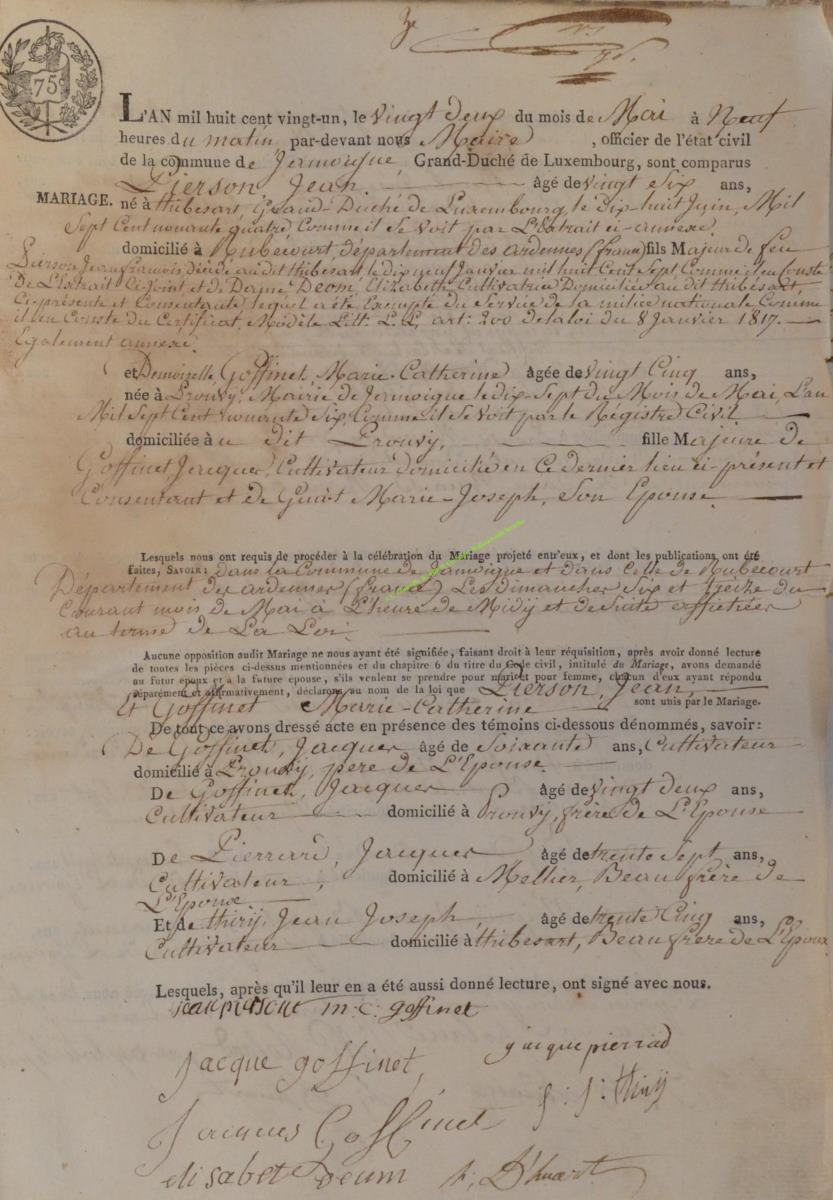 3e
75
L'AN mil huit cent vingt-un, le vingt deux du mois de Mai à Neuf
heures du matin par-devant nous Maire, officier de l'état civil
de la commune de Jamoigne, Grand-Duché de Luxembourg, sont comparus
Pierson, Jean. âgé de vingt six ans,
MARIAGE. né à thibesart, Grand-Duché de Luxembourg, le dix-huit Juin, Mil
Sept Cent nonante quatre, Comme il se voit par L'Extrait ci-annexé.
domicilié à Nubécourt, département des ardennes (france) fils Majeur de feu
Pierson, Jean françois décédé audit thibesart le dix neuf Janvier mil huit Cent Sept Comme il en Conste
De L'Extrait Ci-Joint et de Dame Deom, Elizabette Cultivatrice Domiciliée au dit thibesart,
Ci-présente et Consentante lequel a été Exempté du Service de la milice nationale Comme
il en Conste du Certificat, Modèle Litt. L.L, art: 200 de la loi du 8 Janvier 1817.
Egalement annexé.
et Demoizelle Goffinet, Marie-Catherine agée de vingt Cinq ans,
née à Prouvy, Mairie de Jamoigne le dix-Sept du Mois de Mai, L'an
Mil Sept Cent nonante Six, Comme il se voit par le Régistre Civil
domiciliée à u dit Prouvy, fille Majeure de
Goffinet Jacques, Cultivateur domicilié en Ce dernier lieu ci-présent et
Consentant et de Guiot Marie-Joseph, Son Epouse
Lesquels nous ont requis de procéder à la célébration du Mariage projeté entr'eux, et dont les publications ont été
faites, SAVOIR: dans la Commune de Jamoigne et dans Celle de Nubécourt
Département des ardennes (france) Les Dimanches Six et treize du
Courant mois de Mai à L'heure de Midy et de suite affichées
au terme de La Loi.
Aucune opposition audit Mariage ne nous ayant été signifiée, faisant droit à leur réquisition, après avoir donné lecture
de toutes les pièces ci-dessus mentionnées et du chapitre 6 du titre du Code civil, intitulé du Mariage, avons demandé
au futur epoux et a la future epouse, s'ils veulent se prendre pour mari et pour femme, chacun d'eux ayant répondu
séparément et affirmativement, déclarons au nom de la loi que Pierson, Jean,
Et Goffinet Marie-Catherine sont unis par le Mariage.
De tout ce avons dressé acte en présence des témoins ci-dessous dénommés, savoir:
De Goffinet, Jacques âgé de Soixante ans, Cultivateur
domicilié à Prouvy, pere de L'Epouse
De Goffinet, Jacques âgé de vingt deux ans,
Cultivateur domicilié à Prouvy, frère de L'Epouse
De Pierrard, Jacques âgé de trente Sept ans,
Cultivateur, domicilié à Mellier, Beau frère de
L'Epouse
Et de thirÿ, Jean Joseph, âgé de trente Cinq ans,
Cultivateur domicilié à thibesart, Beau frère de L'Epoux
Lesquels, après qu'il leur en a été aussi donné lecture, ont signé avec nous.
jean pierson m: c: goffinet
Jacque goffinet, jacque pierrad
J: J: thirÿ
Jacques Goffinet
elisabet Deum h, D'huart